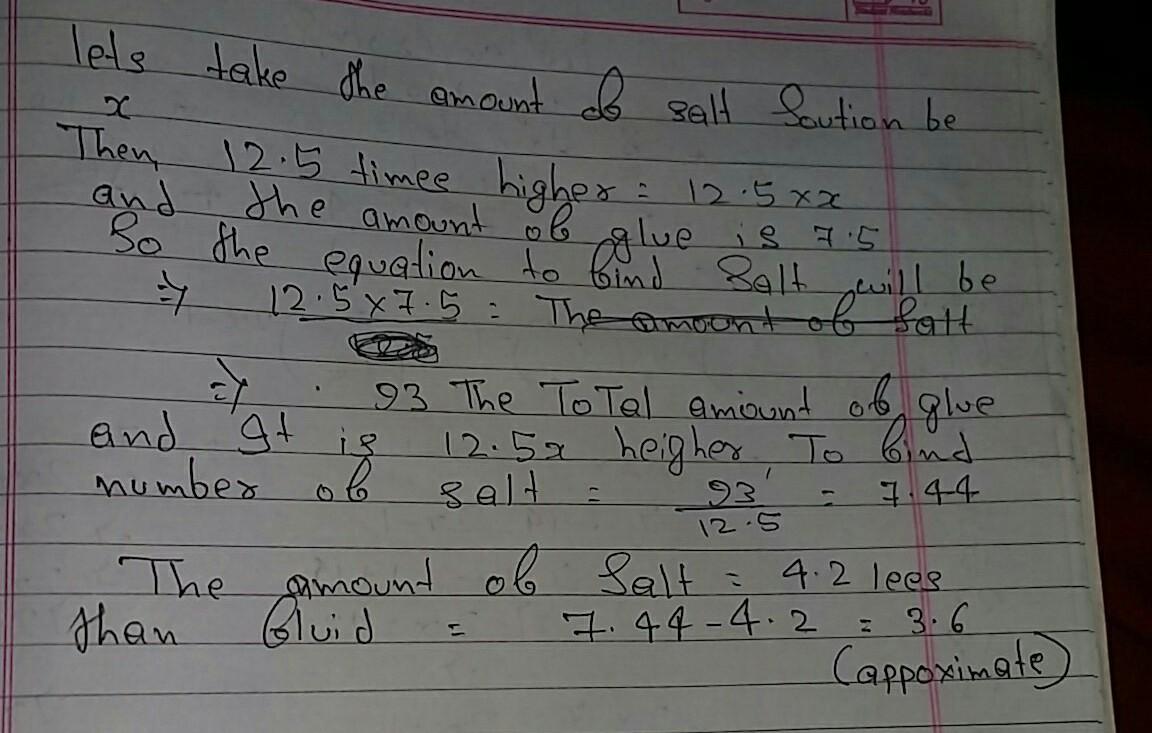 lets take the amount of salt Soution be
x
Then, 12.5 times higher = 12.5 x x
and the amount of glue is 7.5
So the equation to find Salt will be
=> 12.5 x 7.5 = The amount of Salt
=> . 93 The ToTal amiount of glue
and It is 12.5x heigher, To find
number of salt = 93 / 12.5 = 7.44
The amount of Salt = 4.2 lees
than fluid = 7.44 - 4.2 = 3.6
(appoximate)